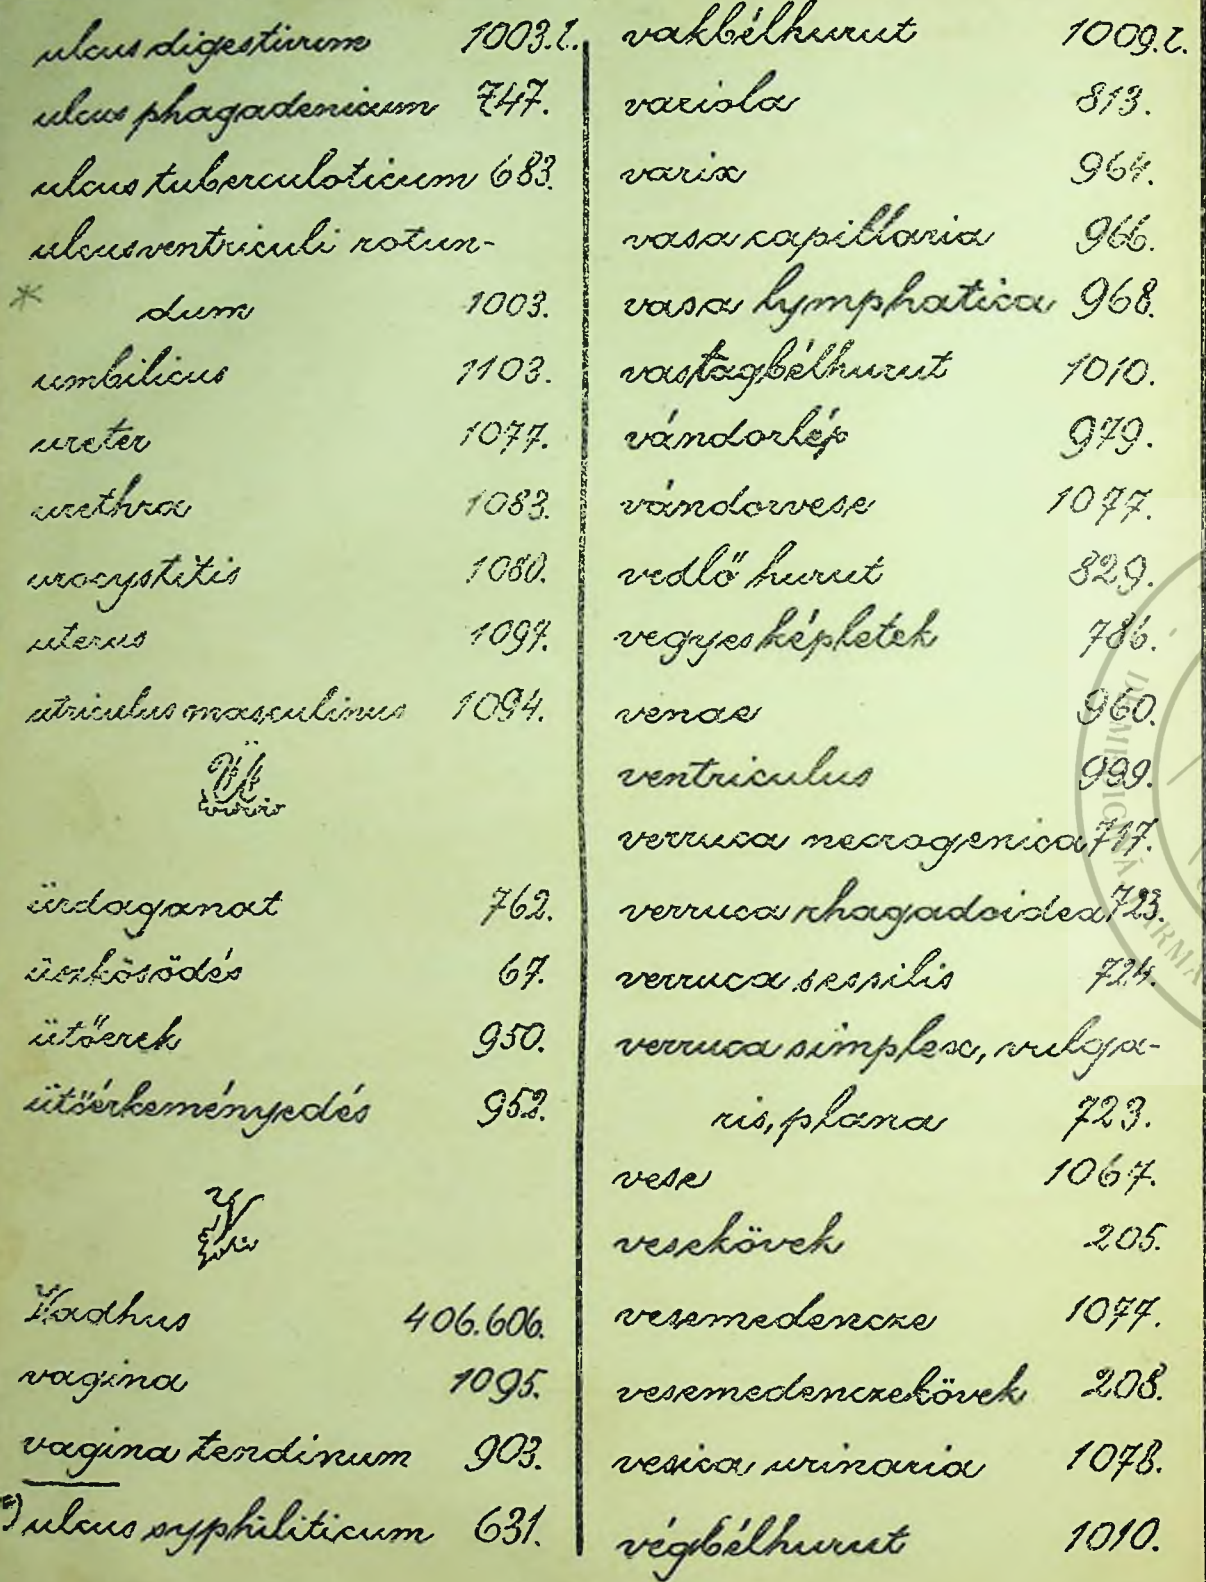 ulcus digestivum 1003.l.
ulcus phagadenicum 747.
ulcus tuberculoticum 683.
ulcus ventriculi rotun-
* dum 1003.
umbilicus 1103.
ureter 1077.
urethra 1083.
urocystitis 1080.
uterus 1097.
utriculus masculinus 1094.
Ü
ürdaganat 762.
üszkösödés 67.
ütőerek 950.
ütőérkeményedés 952.
V
Vadhus 406.606.
vagina 1095.
vagina tendinum 903.
*) ulcus syphiliticum 631.
vakbélhurut 1009.l.
variola 813.
varix 964.
vasa capillaria 966.
vasa lymphatica 968.
vastagbélhurut 1010.
vándorlép 979.
vándorvese 1077.
vedlő hurut 829.
vegyes képletek 786.
venae 960.
ventriculus 999.
verruca necrogenica 717.
verruca rhagadoidea 723.
verruca sessilis 724.
verruca simplex, vulga-
ris, plana 723.
vese 1067.
vesekövek 205.
vesemedencze 1077.
vesemedenczekövek 208.
vesica urinaria 1078.
végbélhurut 1010.